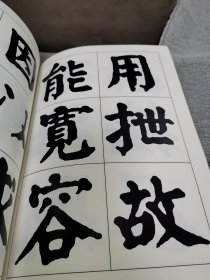 用抴故
能寬容
因